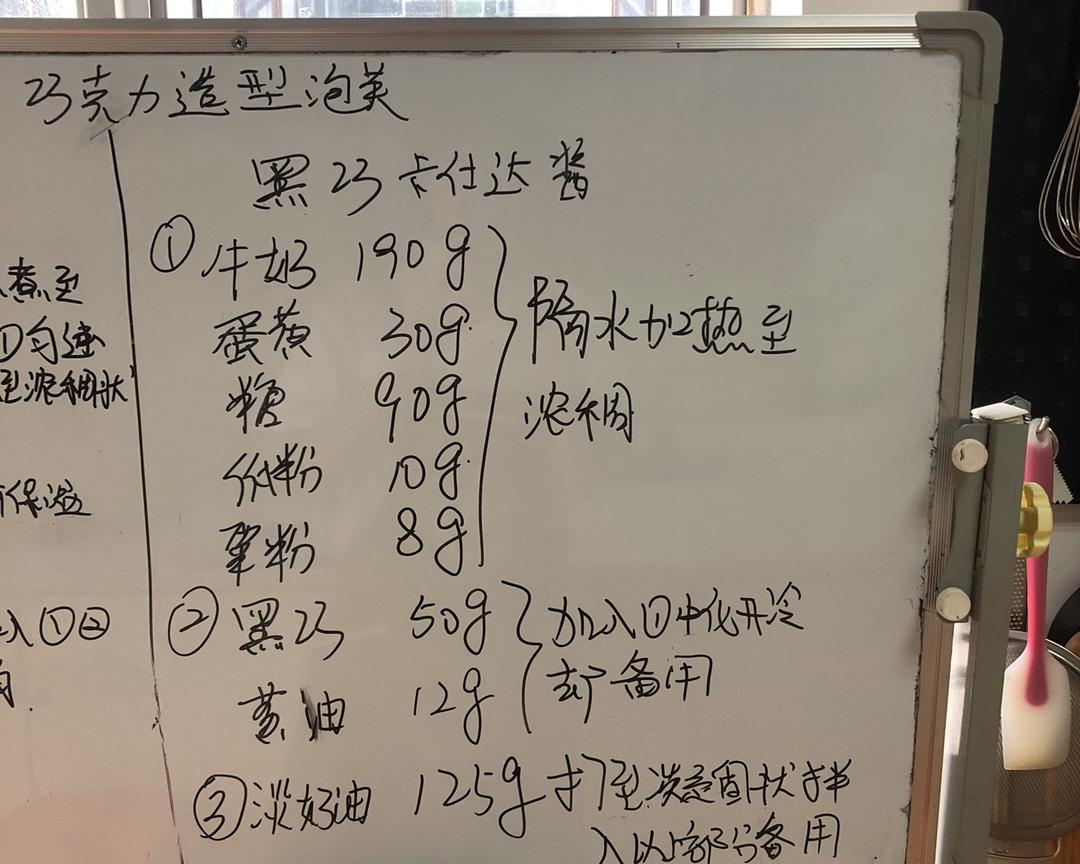 巧克力造型泡芙
煮至
①匀速
至浓稠状
保湿
入①②
黑巧卡仕达酱
① 牛奶 190g
蛋黄 30g
糖 90g
粉 10g
粟粉 8g
隔水加热至
浓稠
② 黑巧 50g
黄油 12g
加入①中化开冷
却备用
③淡奶油 125g 打至凝固状拌
入以部分备用